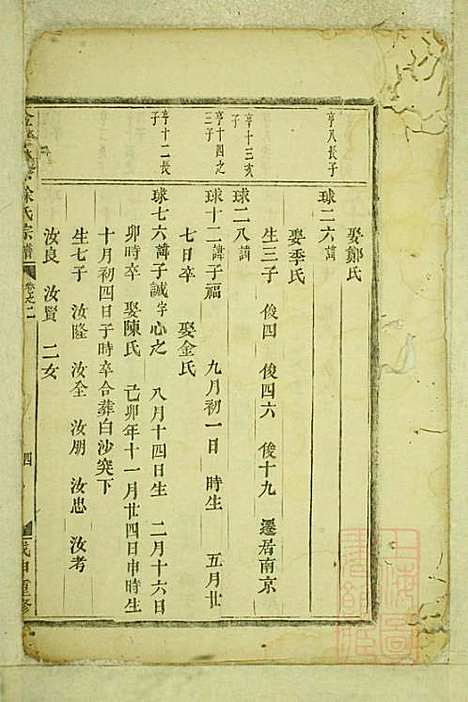 娶鄭氏
亨八長子
球二六諱
娶季氏
生三子 俊四 俊四六 俊十九 遷居南京
亨十三次子
球二八諱
亨十四之三子
球十二諱子福 九月初一日 時生 五月廿
七日卒 娶金氏
亨十二長子
球七六諱子誠字心之 八月十四日生 二月十六日
卯時卒 娶陳氏 己卯年十一月廿四日申時生
十月初四日子時卒合葬白沙突下
生七子 汝隆 汝全 汝朋 汝忠 汝考
汝良 汝賢 二女
徐氏宗譜
卷之二
四
戊申重修
上海圖書館藏